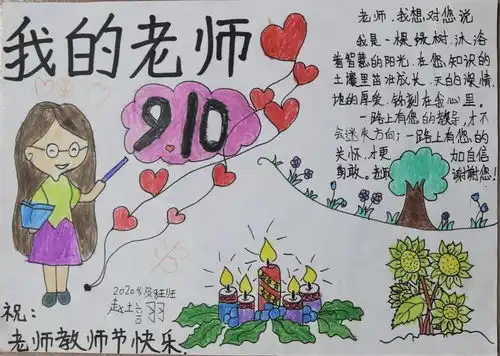 我的老师
9.10
老师,我想对您说
我是一棵绿树,沐浴
着智慧的阳光,在您知识的
土壤里茁壮成长,天的深情,
地的厚爱,铭刻在我心里。
一路上有您的教导,才不
会迷失方向;一路上有您的
关怀,才更 加自信
勇敢。老师 谢谢您!
2020级
祝:
老师教师节快乐.